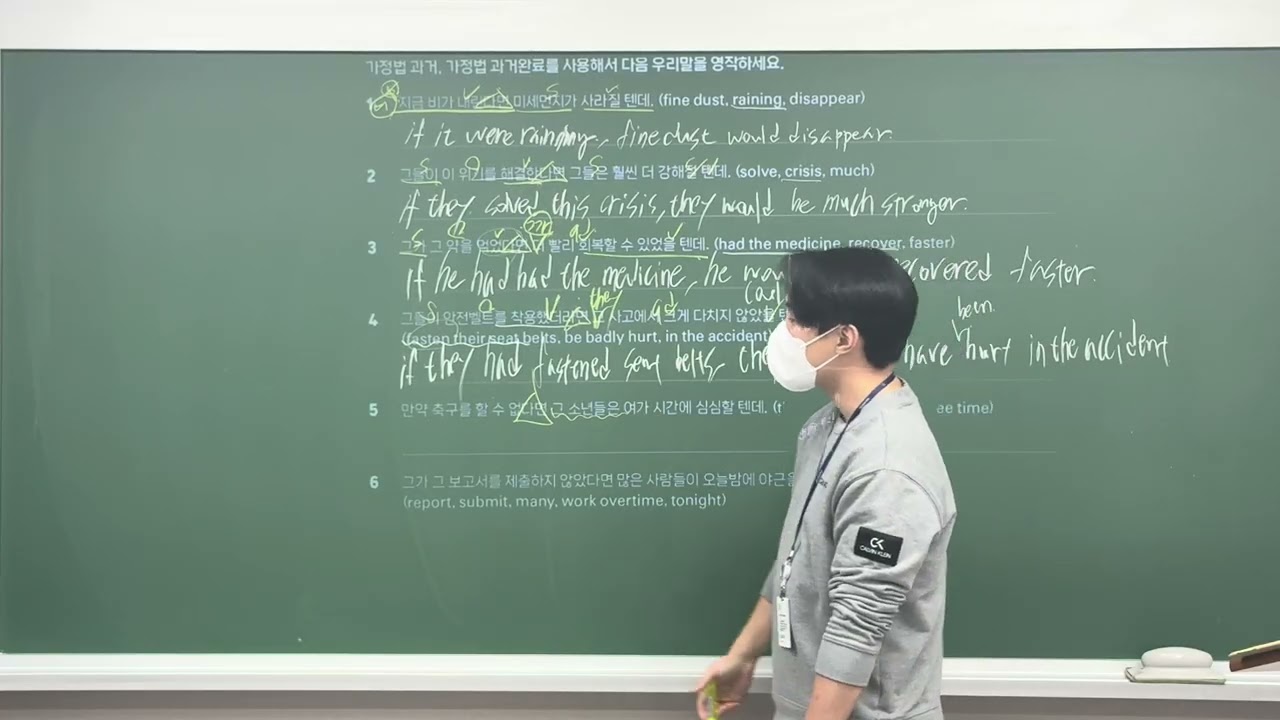 가정법 과거, 가정법 과거완료를 사용해서 다음 우리말을 영작하세요.
지금 비가 내린다면 미세먼지가 사라질 텐데. (fine dust, raining, disappear)
if it were raining, fine dust would disappear.
2 그들이 이 위기를 해결한다면 그들은 훨씬 더 강해질 텐데. (solve, crisis, much)
if they solved this crisis, they would be much stronger.
3 그가 그 약을 먹었다면 더 빨리 회복할 수 있었을 텐데. (had the medicine, recover, faster)
if he had had the medicine, he recovered faster.
been
4 그들이 안전벨트를 착용했더라면 그 사고에서 크게 다치지 않았을
(fasten their seat belts, be badly hurt, in the accident)
if they had fastened seat belts, have hurt in the accident
5 만약 축구를 할 수 없다면 그 소년들은 여가 시간에 심심할 텐데. time)
6 그가 그 보고서를 제출하지 않았다면 많은 사람들이 오늘밤에
(report, submit, many, work overtime, tonight)
CK
CALVIN KLEIN